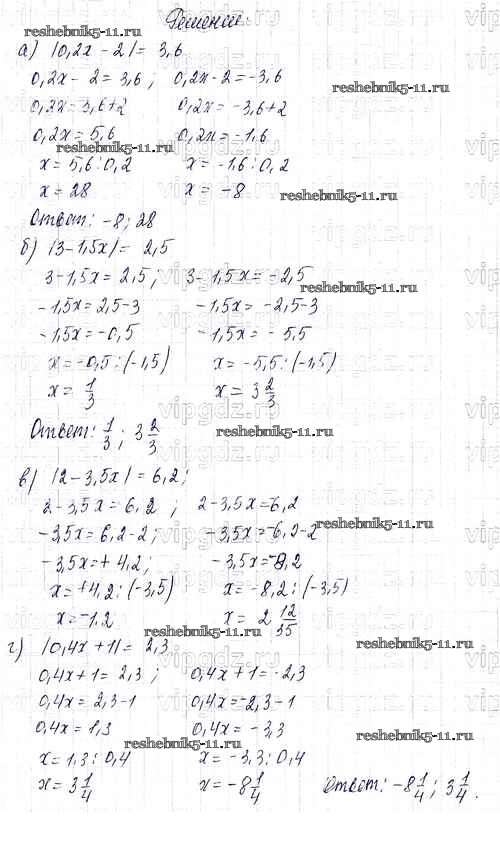 Решение:
reshebnik5-11.ru
а) |0,2x - 2| = 3,6
0,2x - 2 = 3,6 ; 0,2x - 2 = -3,6
0,2x = 3,6+2 0,2x = -3,6+2
reshebnik5-11.ru
0,2x = 5,6 0,2x = -1,6
reshebnik5-11.ru
x = 5,6 : 0,2 x = -1,6 : 0,2
x = 28 x = -8
reshebnik5-11.ru
Ответ: -8; 28
б) |3-1,5x| = 2,5
3-1,5x = 2,5 ; 3-1,5x = -2,5
reshebnik5-11.ru
-1,5x = 2,5-3 -1,5x = -2,5-3
-1,5x = -0,5 -1,5x = -5,5
x = -0,5 : (-1,5) x = -5,5 : (-1,5)
x = 1/3 x = 3 2/3
Ответ: 1/3 ; 3 2/3
reshebnik5-11.ru
в) |2-3,5x| = 6,2 ;
2-3,5x = 6,2 ; 2-3,5x = -6,2
reshebnik5-11.ru
-3,5x = 6,2-2 ; -3,5x = -6,2-2
-3,5x = +4,2 ; -3,5x = -8,2
x = +4,2 : (-3,5) x = -8,2 : (-3,5)
x = -1,2 x = 2 12/35
reshebnik5-11.ru
г) |0,4x + 1| = 2,3
reshebnik5-11.ru
0,4x + 1 = 2,3 ; 0,4x + 1 = -2,3
0,4x = 2,3-1 0,4x = -2,3-1
0,4x = 1,3 0,4x = -3,3
reshebnik5-11.ru
reshebnik5-11.ru
x = 1,3 : 0,4 x = -3,3 : 0,4
x = 3 1/4 x = -8 1/4 Ответ: -8 1/4 ; 3 1/4 .